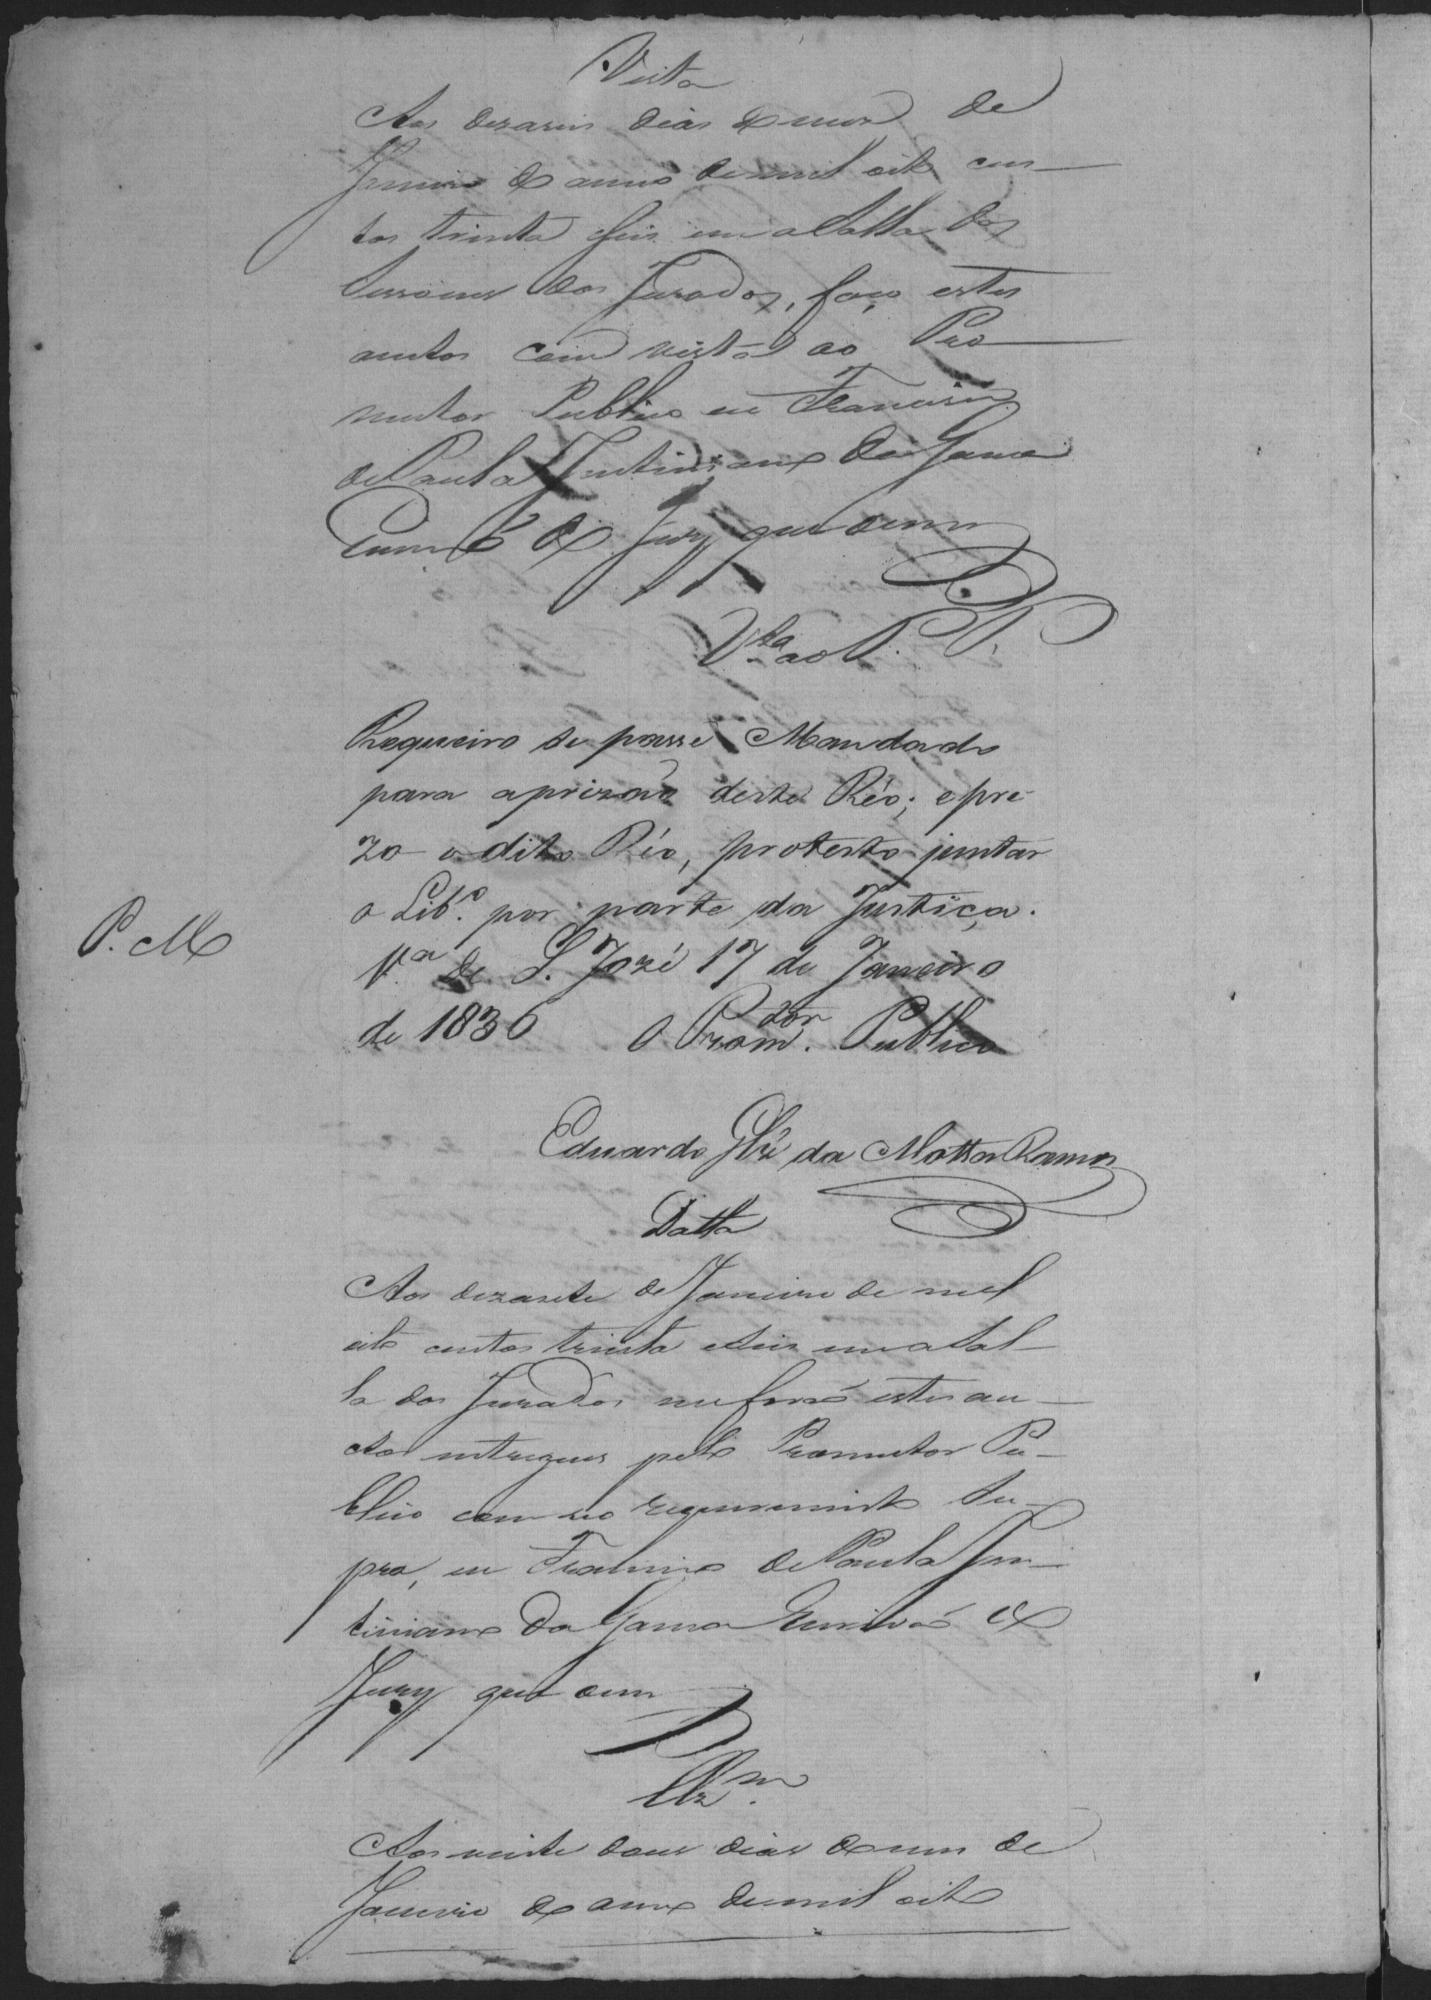 Vista
Aos dezaseis dias do mes de
Janeiro do anno de mil oito cen-
tos trinta seis em a Salla das
Sessoens dos Jurados, faço estes
autos com vista ao Pro
mutor Publico eu Francisco
de Paula Justiniano da Gama
Escrivaõ do Jury que escrevi
Vta ao P. P.
Requeiro se passe Mandado
para aprizaõ deste Réo; e pre-
zo o dito Réo, protesto juntar
o Lib.º por parte da Justiça.
P. M
V.a de S. Jozé 17 de Janeiro
de 1836 O Promdor. Publico
Eduardo Jozé da Motta Ramos
Datta
Aos dezasete de Janeiro de mil
oito centos trinta e seis em a Sal-
la dos Jurados me foraõ estes au-
ctos entregues pelo Promutor Pu-
blico com seo requerimento su-
pra, eu Francisco de Paula Jus-
tiniano da Gama Escrivaõ do
Jury que escrevi
Clzm.
Aos vinte dous dias do mes de
Janeiro do anno de mil oito